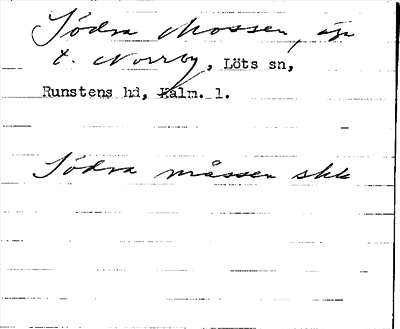 Södra Mossen, äga
t. Norrby, Löts sn,
Runstens hd, Kalm. l.
Södra måssen skk